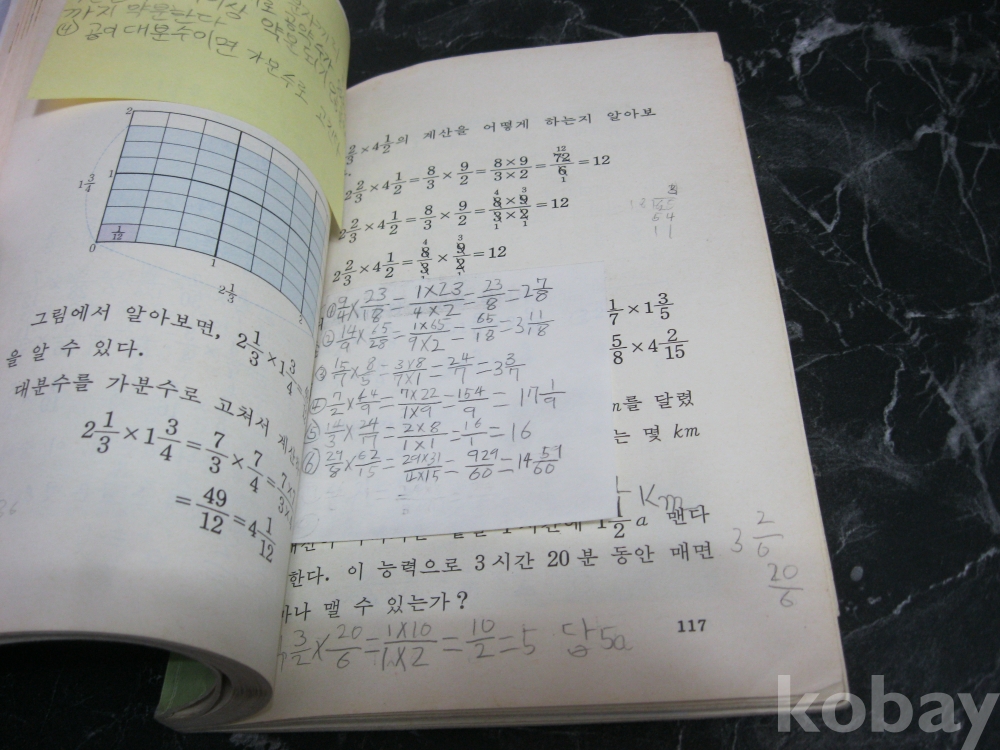 까지 약분한다
④ 공여 대분수이면 가분수로
2
1 3/4
1
1/12
0
1
2 1/3
2
그림에서 알아보면, 2 1/3 × 1 3/4 =
을 알 수 있다.
대분수를 가분수로 고쳐서 계산
2 1/3 × 1 3/4 = 7/3 × 7/4 =
= 49/12 = 4 1/12
× 4 1/2 의 계산을 어떻게 하는지 알아보
2 2/3 × 4 1/2 = 8/3 × 9/2 = 8×9/3×2 = 72/6 = 12
2 2/3 × 4 1/2 = 8/3 × 9/2 = 8×9/3×2 = 12
2 2/3 × 4 1/2 = 8/3 × 9/2 = 12
64
11
① 9/4 × 23/18 = 1×23/4×2 = 23/8 = 2 7/8
② 14/9 × 65/28 = 1×65/9×2 = 65/18 = 3 11/18
③ 15/7 × 8/5 = 3×8/7×1 = 24/7 = 3 3/7
④ 7/2 × 44/9 = 7×22/1×9 = 154/9 = 17 1/9
⑤ 14/3 × 24/7 = 2×8/1×1 = 16/1 = 16
⑥ 29/8 × 62/15 = 29×31/4×15 = 929/60 = 14 59/60
1/7 × 1 3/5
5/8 × 4 2/15
를 달렸
는 몇 km
Km
1 1/2 a 맨다
한다. 이 능력으로 3시간 20분 동안 매면
마나 맬 수 있는가?
3/2 × 20/6 = 1×10/1×2 = 10/2 = 5 답 5a
3 2/6
20/6
117
kobay